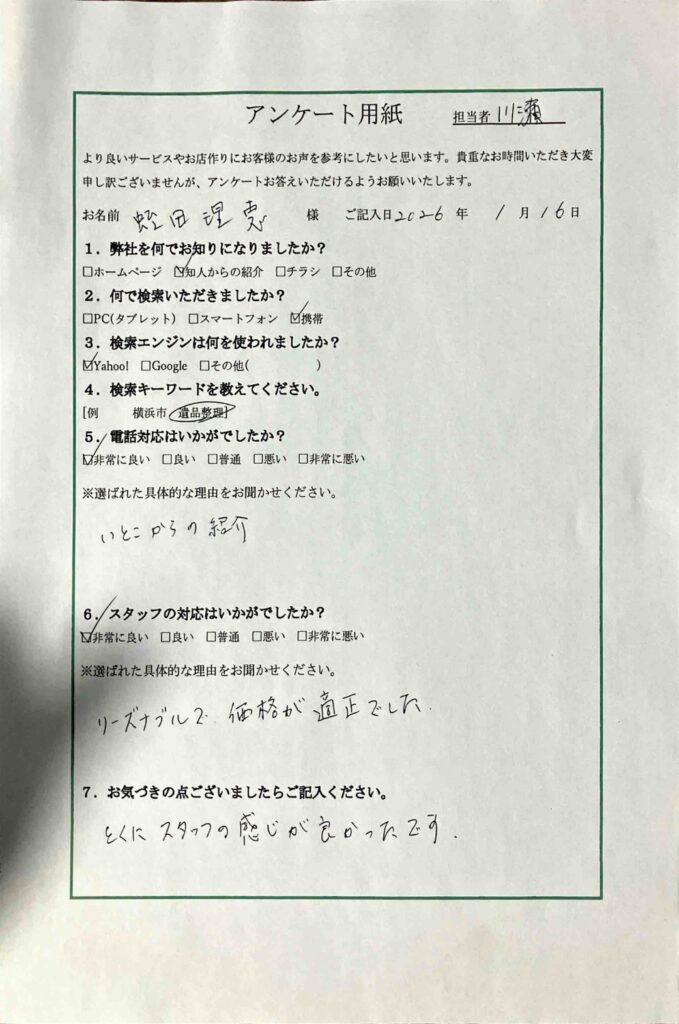 アンケート用紙 担当者 川瀬
より良いサービスやお店作りにお客様のお声を参考にしたいと思います。貴重なお時間いただき大変
申し訳ございませんが、アンケートお答えいただけるようお願いいたします。
お名前 蛭田理恵 様 ご記入日2026年 1月16日
1．弊社を何でお知りになりましたか？
□ホームページ ☑知人からの紹介 □チラシ □その他
2．何で検索いただきましたか？
□PC(タブレット) □スマートフォン ☑携帯
3．検索エンジンは何を使われましたか？
☑Yahoo! □Google □その他( )
4．検索キーワードを教えてください。
[例 横浜市 遺品整理]
5．電話対応はいかがでしたか？
☑非常に良い □良い □普通 □悪い □非常に悪い
※選ばれた具体的な理由をお聞かせください。
いとこからの紹介
6．スタッフの対応はいかがでしたか？
☑非常に良い □良い □普通 □悪い □非常に悪い
※選ばれた具体的な理由をお聞かせください。
リーズナブルで 価格が適正でした.
7．お気づきの点ございましたらご記入ください。
とくにスタッフの感じが良かったです.